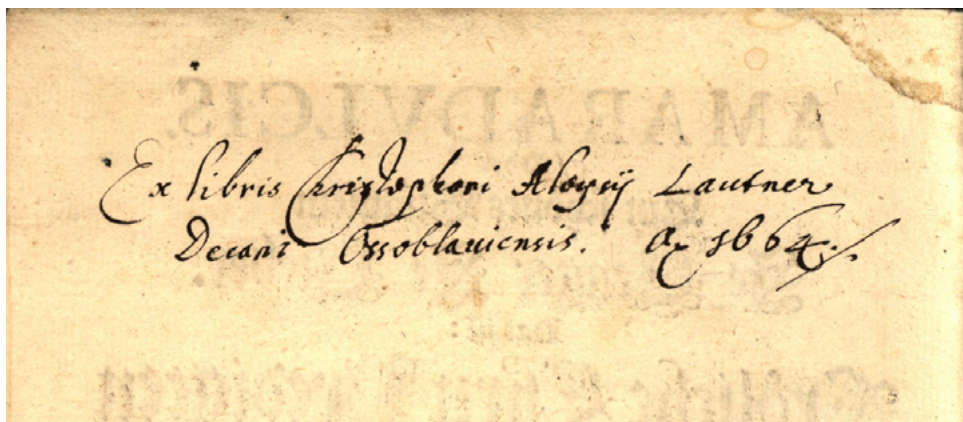 Ex libris Christophori Aloysij Lautner
Decani Ossoblauiensis. Aº 1664./.